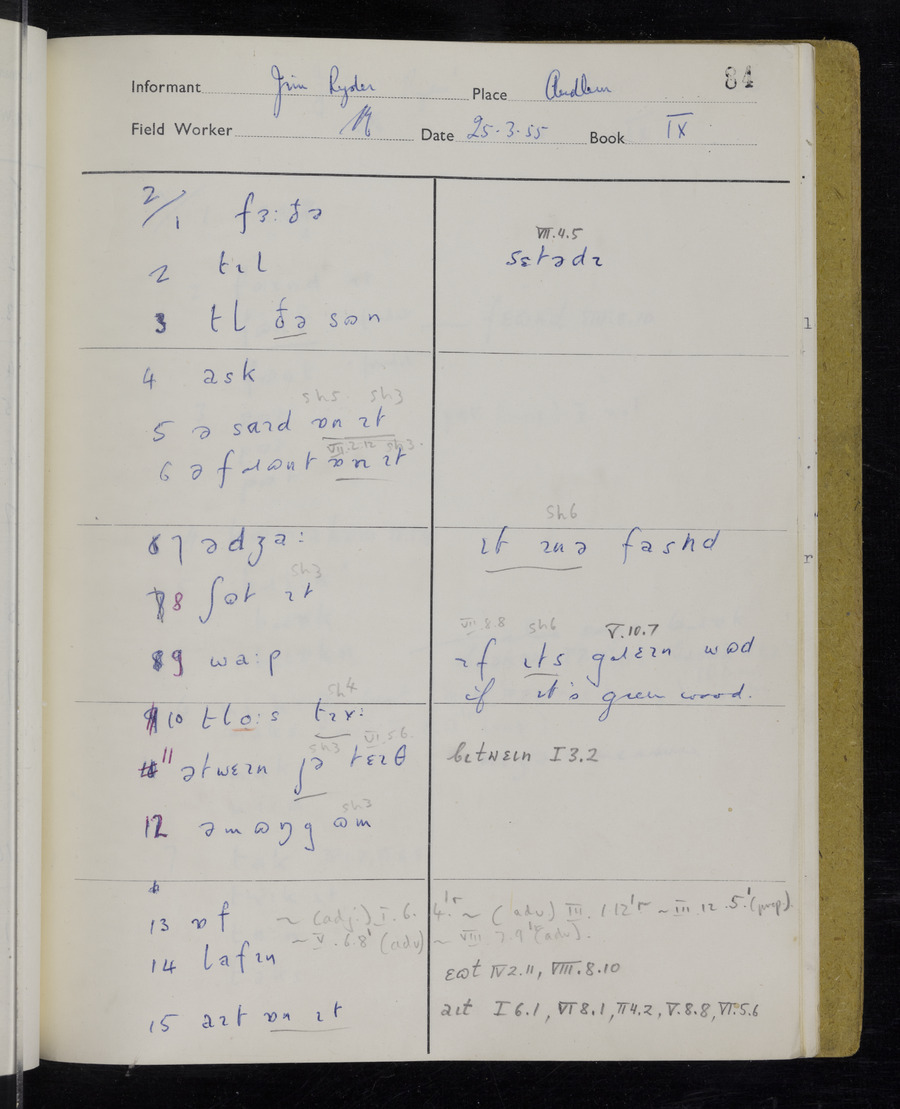 84
Informant Jim Ryder Place Audlem
Field Worker Date 25·3·55 Book IX
2/1 fɜ:ðə
VII.4.5
sɛtədɪ
2 tɪl
3 tl ðə sɷn
4 ask
sh5. sh3
5 ə saɪd ɒn ɪt
VIII.2.12 sh3.
6 ə fɹɷnt ɒn ɪt
sh6
7 ədʒa:
ɪt ɪnə faʃnd
sh3
8 ʃɷt ɪt
VII.8.8 sh6 V.10.7
9 wa:p
ɪf ɪts gɹɛɪn wɷd
if it's green wood.
sh4
10 tlo:s
sh3 VI.5.6.
11 ətwɛɪn tɛɪθ
bɪtwɛɪn I 3.2
sh3
12 əmɷŋg ɷm
13 ɒf ~ (adj.) I.6.4.ʹʳ ~ (adv) III.1.12ʹʳ ~ III.12.5.ʹ (prep).
~ V.6.8ʹ (adv) ~ VIII.7.9ʹ (adv).
14 lafɪn
ɛɷt IV 2.11, VIII.8.10
15 aɪt ɒn ɪt
aɪt I 6.1, VI 8.1, II 4.2, V.8.8, VI.5.6
l
r